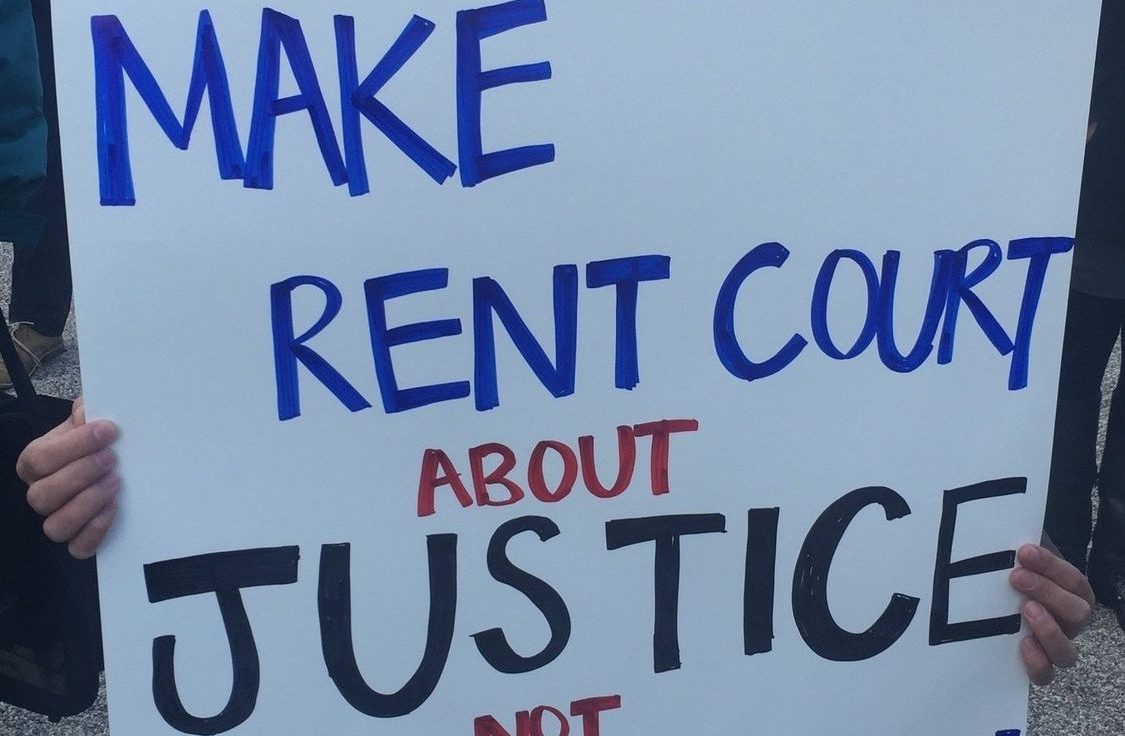 MAKE
RENT COURT
ABOUT
JUSTICE
NOT